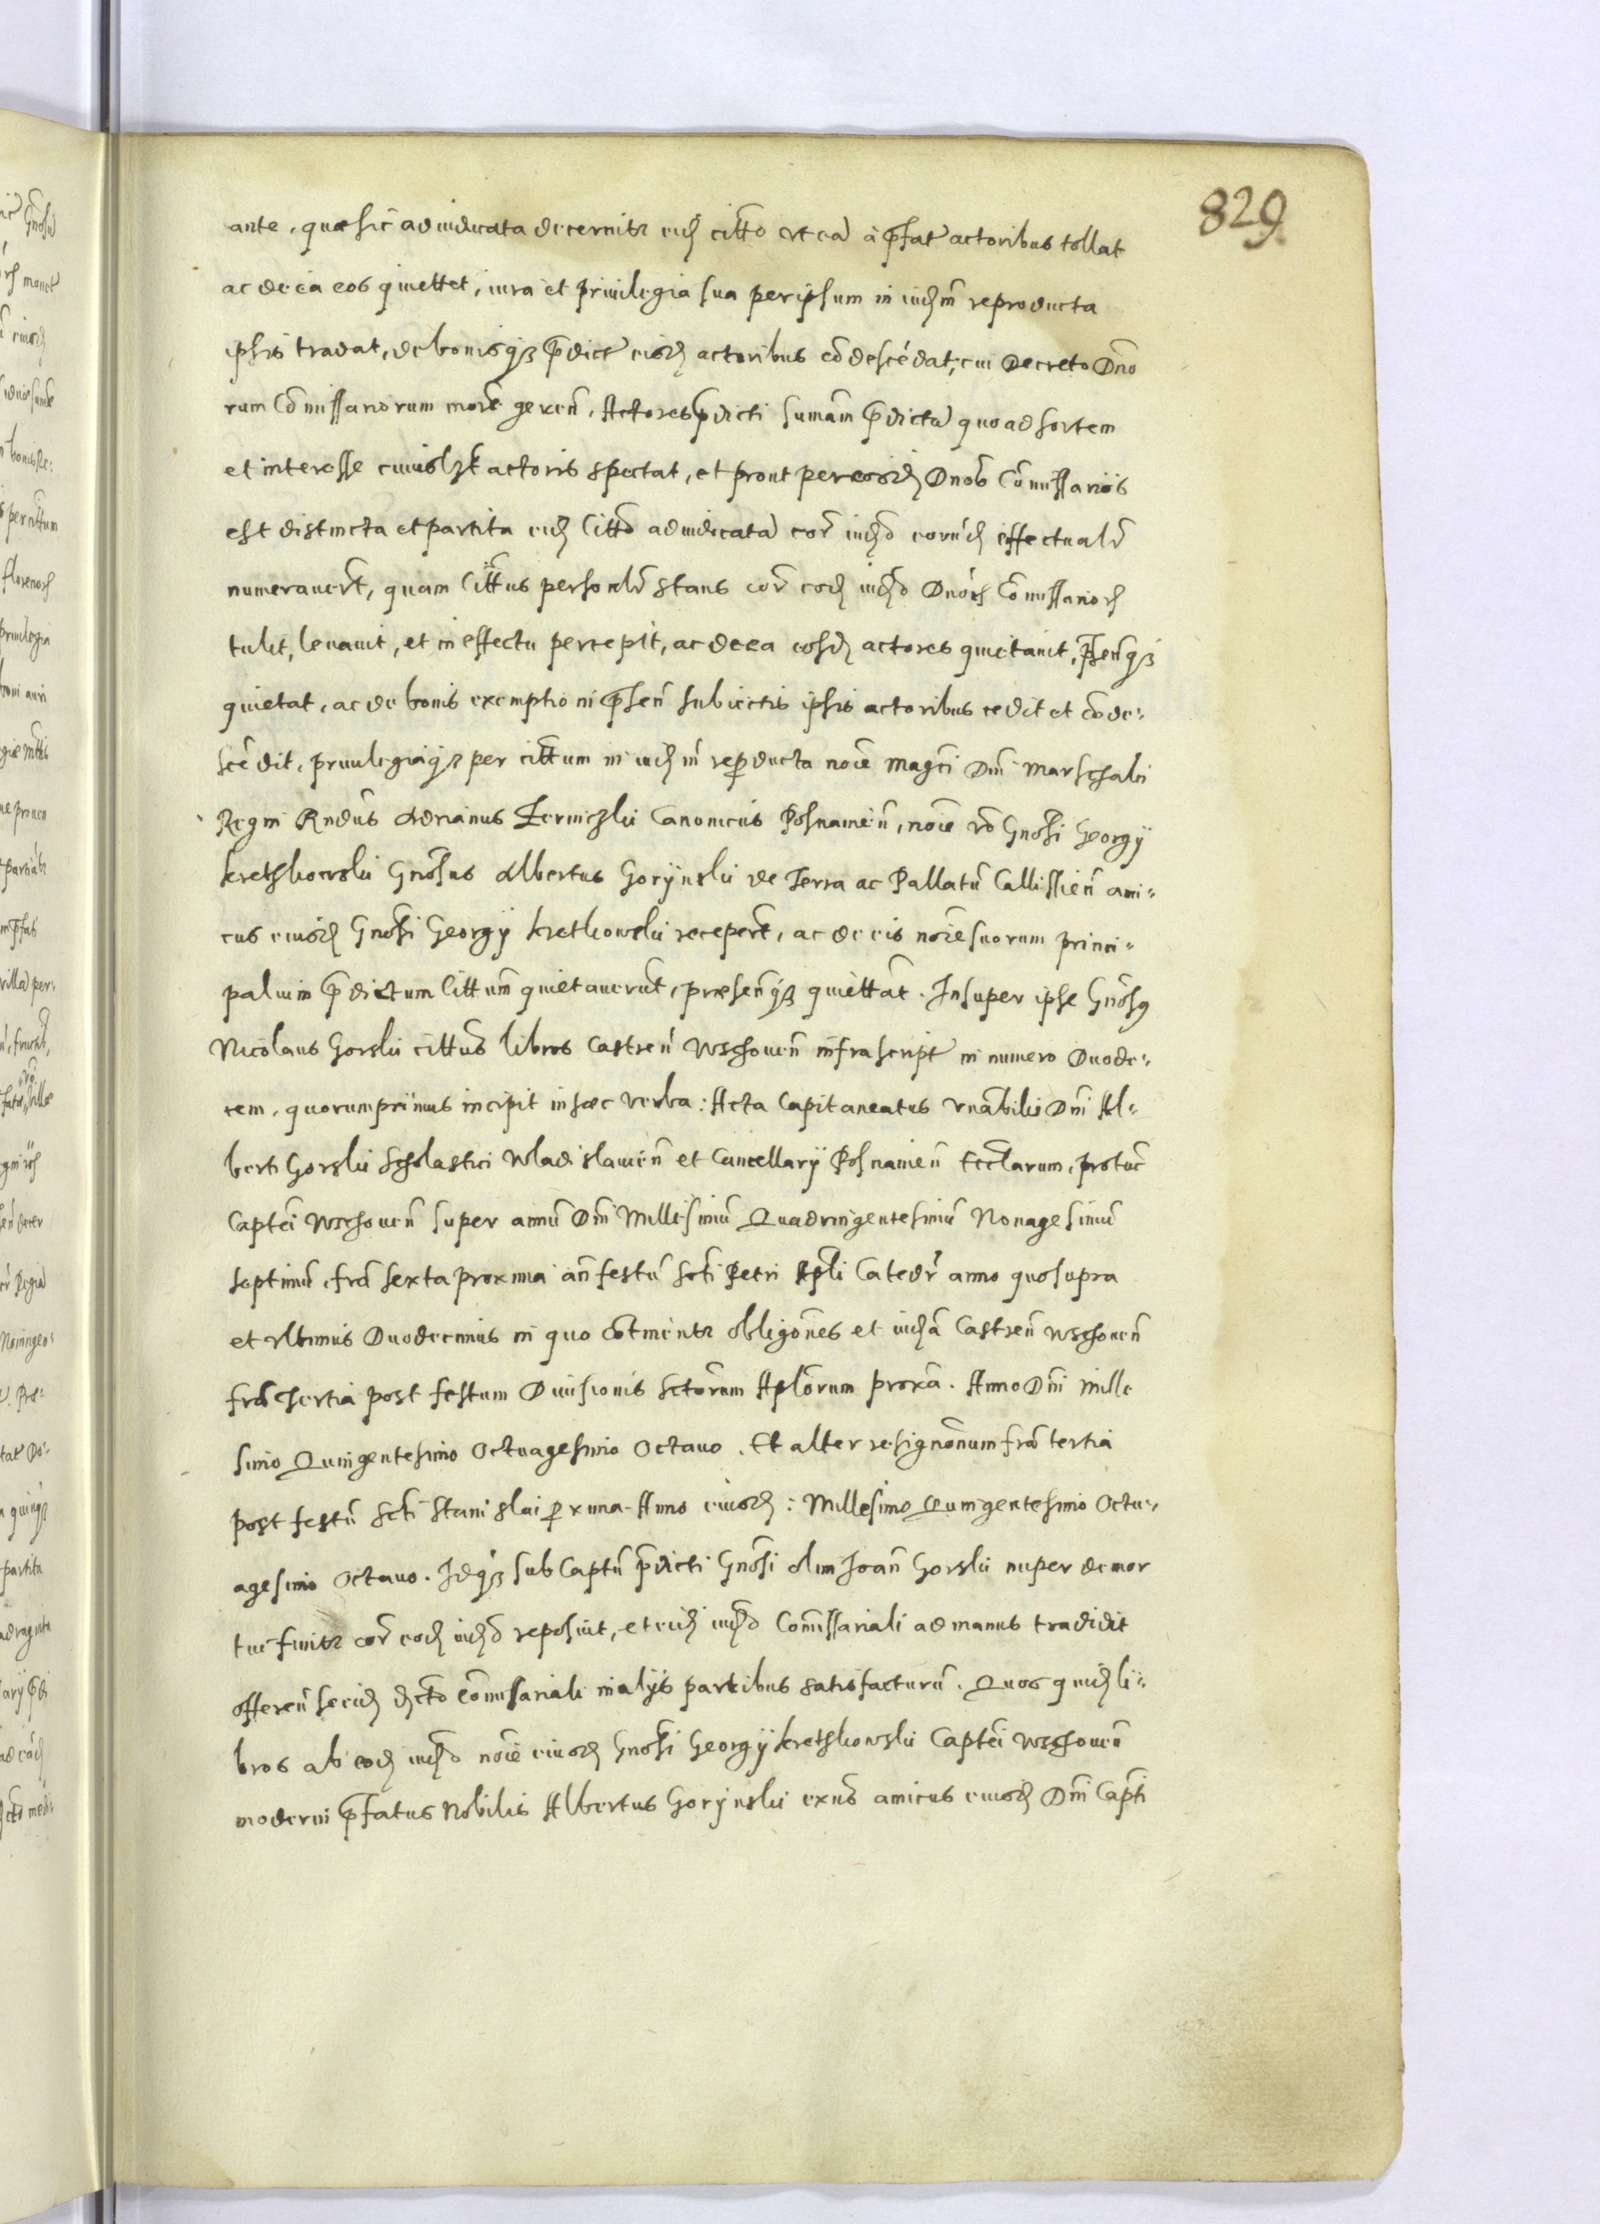 829
ante, quæ sic adiudicata decernitr eid citto vt eã à pfat actoribus tollat
ac de ea eos quiettet, iura et priuilegia sua per ipsum in iudm reproducta
ipsis tradat, de bonisq3 pdict eisd actoribus cõdescédat, cui Decreto Dno
rum Cõmissariorum morẽ geren̄, Actores pdicti sumam̄ pdictã quo ad sortem
et interesse cuiusl3t actoris spectat, et prout per eosd Dnos Cõmissarios
est distincta et partita eid Citto adiudicatã cor̃ iudõ eorūd effectualr
numerauert, quam Cittus personlr stans cor̃ eod iudõ Dnor Cõmissarior
tulit, leuauit, et in effectu percepit, ac de ea eosd actores quietauit, psenq3
quietat, ac de bonis exemptioni psen̄ subiectis ipsis actoribus cedit et cõde:
scẽdit, priuilegiaq3 per cittum in iudm̄ reproducta noie Magci Dni Marschalci
Regni Rndus Adrianus Zerniczki Canonicus Posnanien̄, noie vo Gnosi Georgÿ
kretkowski Gnosus Albertus Gorÿnski de Terra ac Pallatū Callissien̄ ami:
cus eiusd Gnosi Georgÿ kretkowski recepert, ac de eis noie suorum princi:
palium pdictum Cittum quietauerūt, præsenq3 quiettāt. Insuper ipse Gnosus
Nicolaus Gorski cittus libros Castren̄ Wschouen̄ infrascript in numero Duode:
cem, quorum primus incipit in hæc verba: Acta Capitaneatus vnabilis Dni Al:
berti Gorski Scholastici Wladislauien̄ et Cancellarÿ Posnanien̄ Ecclarum, protuc
Captei Wschouen̄ super annū Dni Millesimū Quadringentesimū Nonagesimū
septimū, fra sexta proxima an̄ festū Scti Petri Apli Catedr̃ anno quo supra
et vltimus Duodecimus in quo contmentr obligones et iuda Castren̄ Wschouen̄
fra tertia post festum Diuisionis Sctorum Aplorum proxa. Anno Dni Mille
simo Quingentesimo Octuagesimo Octauo. Et alter resignonum fra tertia
post festū Scti Stanislai pxima Anno eiusd: Millesimo Quingentesimo Octu:
agesimo Octauo. Idq3 sub Captū pdicti Gnosi olim Joan̄ Gorski nuper demor
tui finitr cor̃ eod iudo reposuit, et eid iudo Comissariali ad manus tradidit
offeren̄ se eid Dcto Comissariali in alÿs partibus satisfacturū. Quos quid li:
bros ab eod iudo noie eiusd Gnosi Georgÿ kretkowski Captei Wschouen̄
moderni pfatus Nobilis Albertus Gorÿnski exns amicus eiusd Dni Capti